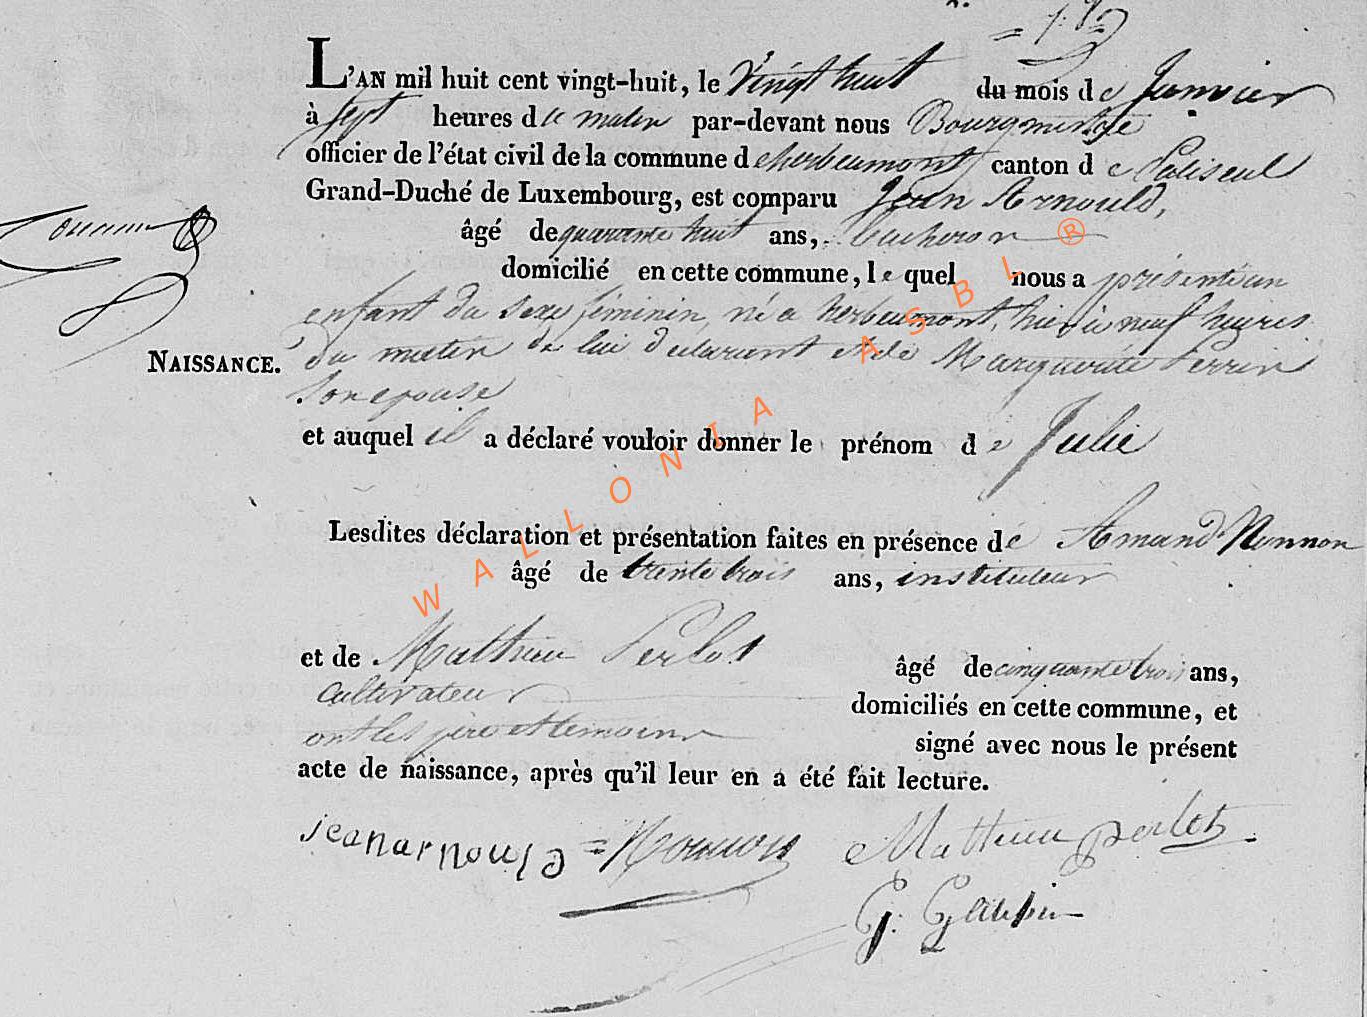 L'AN mil huit cent vingt-huit, le Vingt huit du mois de Janvier
à sept heures du matin par-devant nous Bourgmestre
officier de l'état civil de la commune d'herbeumont canton de Paliseul
Grand-Duché de Luxembourg, est comparu Jean Arnould,
âgé de quarante huit ans, bucheron
domicilié en cette commune, lequel nous a présenté un
enfant du sexe féminin, né a herbeumont, hier à neuf heures
NAISSANCE. du matin de lui déclarant et de Marguerite Perrin
son epouse
et auquel il a déclaré vouloir donner le prénom de Julie
Lesdites déclaration et présentation faites en présence de Amand Nonnon
âgé de trente trois ans, instituteur
et de Mathieu Perlot âgé de cinquante trois ans,
cultivateur
domiciliés en cette commune, et
ont les père et temoins signé avec nous le présent
acte de naissance, après qu'il leur en a été fait lecture.
jean arnould = Nonnon Mathieu perlot
WALLONIA ASBL ®